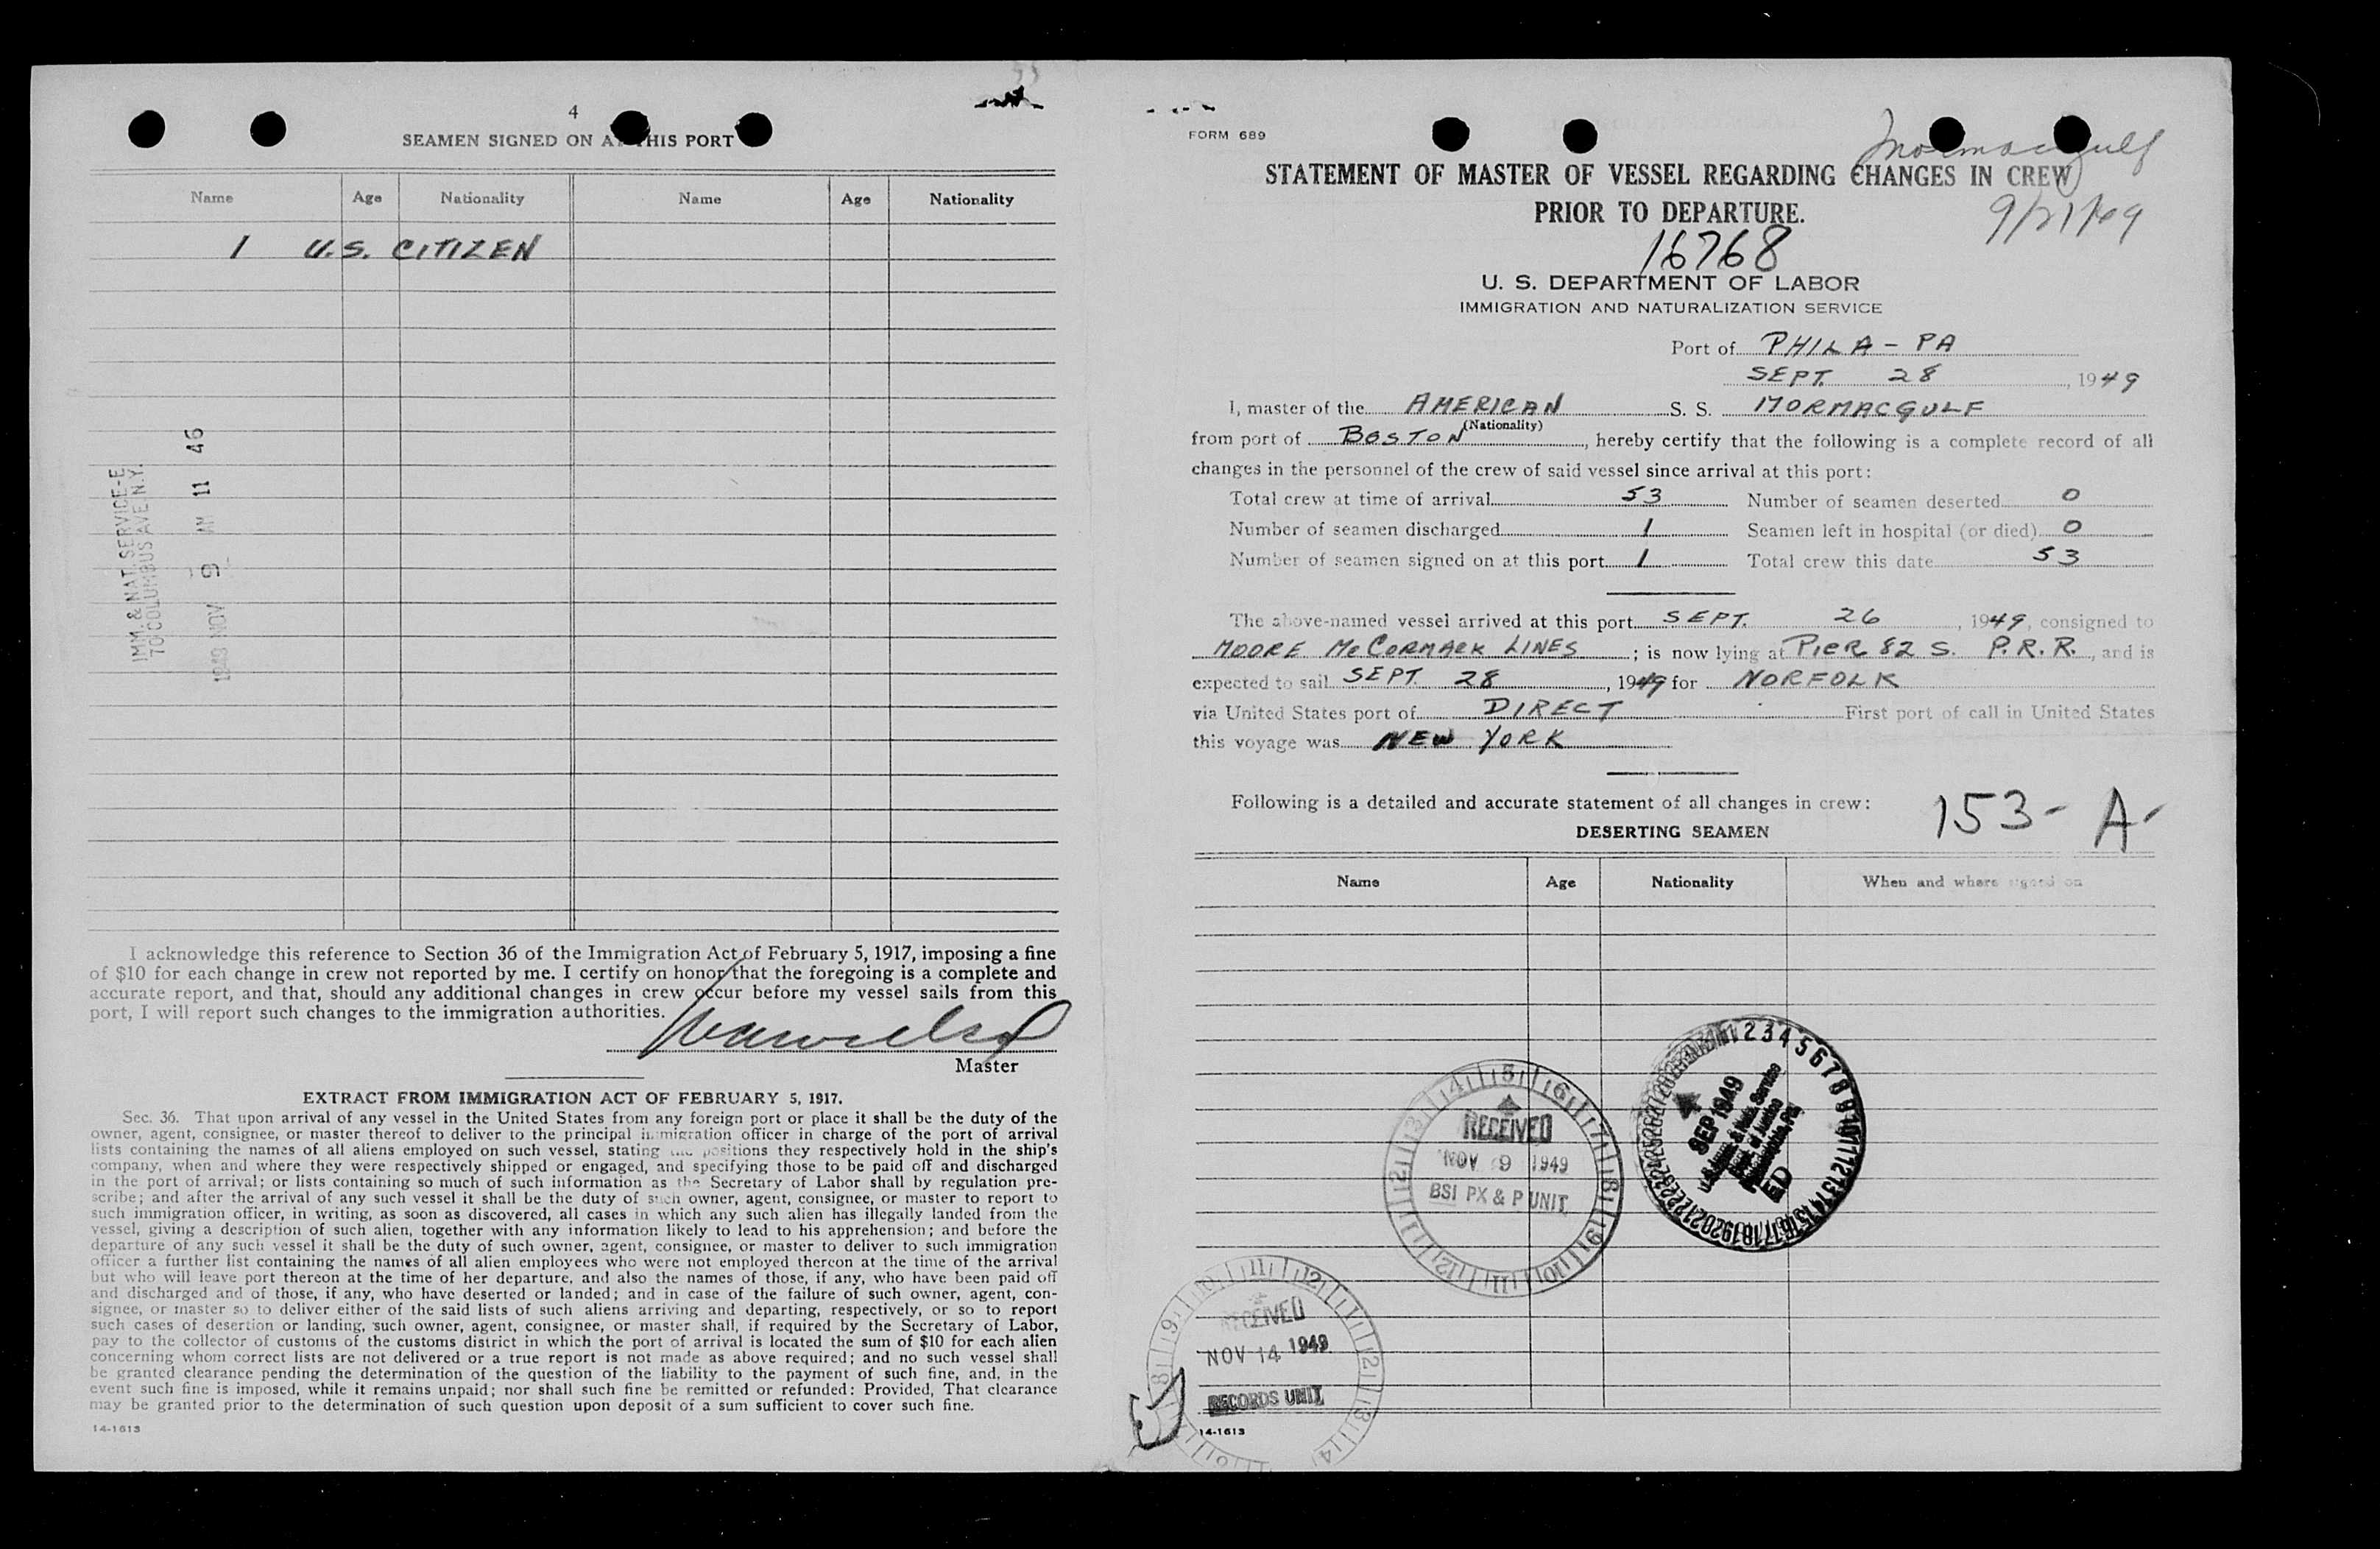 4
SEAMEN SIGNED ON AT THIS PORT
Name Age Nationality Name Age Nationality
1 U.S. CITIZEN
IMM. & NAT. SERVICE-E
70 COLUMBUS AVE. N.Y.
1949 NOV 9 AM 11 46
I acknowledge this reference to Section 36 of the Immigration Act of February 5, 1917, imposing a fine
of $10 for each change in crew not reported by me. I certify on honor that the foregoing is a complete and
accurate report, and that, should any additional changes in crew occur before my vessel sails from this
port, I will report such changes to the immigration authorities.
Master
EXTRACT FROM IMMIGRATION ACT OF FEBRUARY 5, 1917.
Sec. 36. That upon arrival of any vessel in the United States from any foreign port or place it shall be the duty of the
owner, agent, consignee, or master thereof to deliver to the principal immigration officer in charge of the port of arrival
lists containing the names of all aliens employed on such vessel, stating the positions they respectively hold in the ship's
company, when and where they were respectively shipped or engaged, and specifying those to be paid off and discharged
in the port of arrival; or lists containing so much of such information as the Secretary of Labor shall by regulation pre-
scribe; and after the arrival of any such vessel it shall be the duty of such owner, agent, consignee, or master to report to
such immigration officer, in writing, as soon as discovered, all cases in which any such alien has illegally landed from the
vessel, giving a description of such alien, together with any information likely to lead to his apprehension; and before the
departure of any such vessel it shall be the duty of such owner, agent, consignee, or master to deliver to such immigration
officer a further list containing the names of all alien employees who were not employed thereon at the time of the arrival
but who will leave port thereon at the time of her departure, and also the names of those, if any, who have been paid off
and discharged and of those, if any, who have deserted or landed; and in case of the failure of such owner, agent, con-
signee, or master so to deliver either of the said lists of such aliens arriving and departing, respectively, or so to report
such cases of desertion or landing, such owner, agent, consignee, or master shall, if required by the Secretary of Labor,
pay to the collector of customs of the customs district in which the port of arrival is located the sum of $10 for each alien
concerning whom correct lists are not delivered or a true report is not made as above required; and no such vessel shall
be granted clearance pending the determination of the question of the liability to the payment of such fine, and, in the
event such fine is imposed, while it remains unpaid; nor shall such fine be remitted or refunded: Provided, That clearance
may be granted prior to the determination of such question upon deposit of a sum sufficient to cover such fine.
14-1613
FORM 689
Mormacgulf
STATEMENT OF MASTER OF VESSEL REGARDING CHANGES IN CREW
PRIOR TO DEPARTURE.
9/21/49
16768
U. S. DEPARTMENT OF LABOR
IMMIGRATION AND NATURALIZATION SERVICE
Port of PHILA - PA
SEPT. 28, 1949
I, master of the AMERICAN S. S. MORMACGULF
(Nationality)
from port of BOSTON, hereby certify that the following is a complete record of all
changes in the personnel of the crew of said vessel since arrival at this port:
Total crew at time of arrival 53 Number of seamen deserted 0
Number of seamen discharged 1 Seamen left in hospital (or died) 0
Number of seamen signed on at this port 1 Total crew this date 53
The above-named vessel arrived at this port SEPT. 26, 1949, consigned to
MOORE McCORMACK LINES; is now lying at PIER 82 S. P.R.R., and is
expected to sail SEPT. 28, 1949 for NORFOLK
via United States port of DIRECT First port of call in United States
this voyage was NEW YORK
Following is a detailed and accurate statement of all changes in crew:
153- A-
DESERTING SEAMEN
Name Age Nationality When and where signed on
SEP 1949
U.S. Imm. & Natz. Service
Dept. of Justice
Philadelphia, Pa.
ED
RECEIVED
NOV 9 1949
BSI PX & P UNIT
RECEIVED
NOV 14 1949
RECORDS UNIT
14-1613